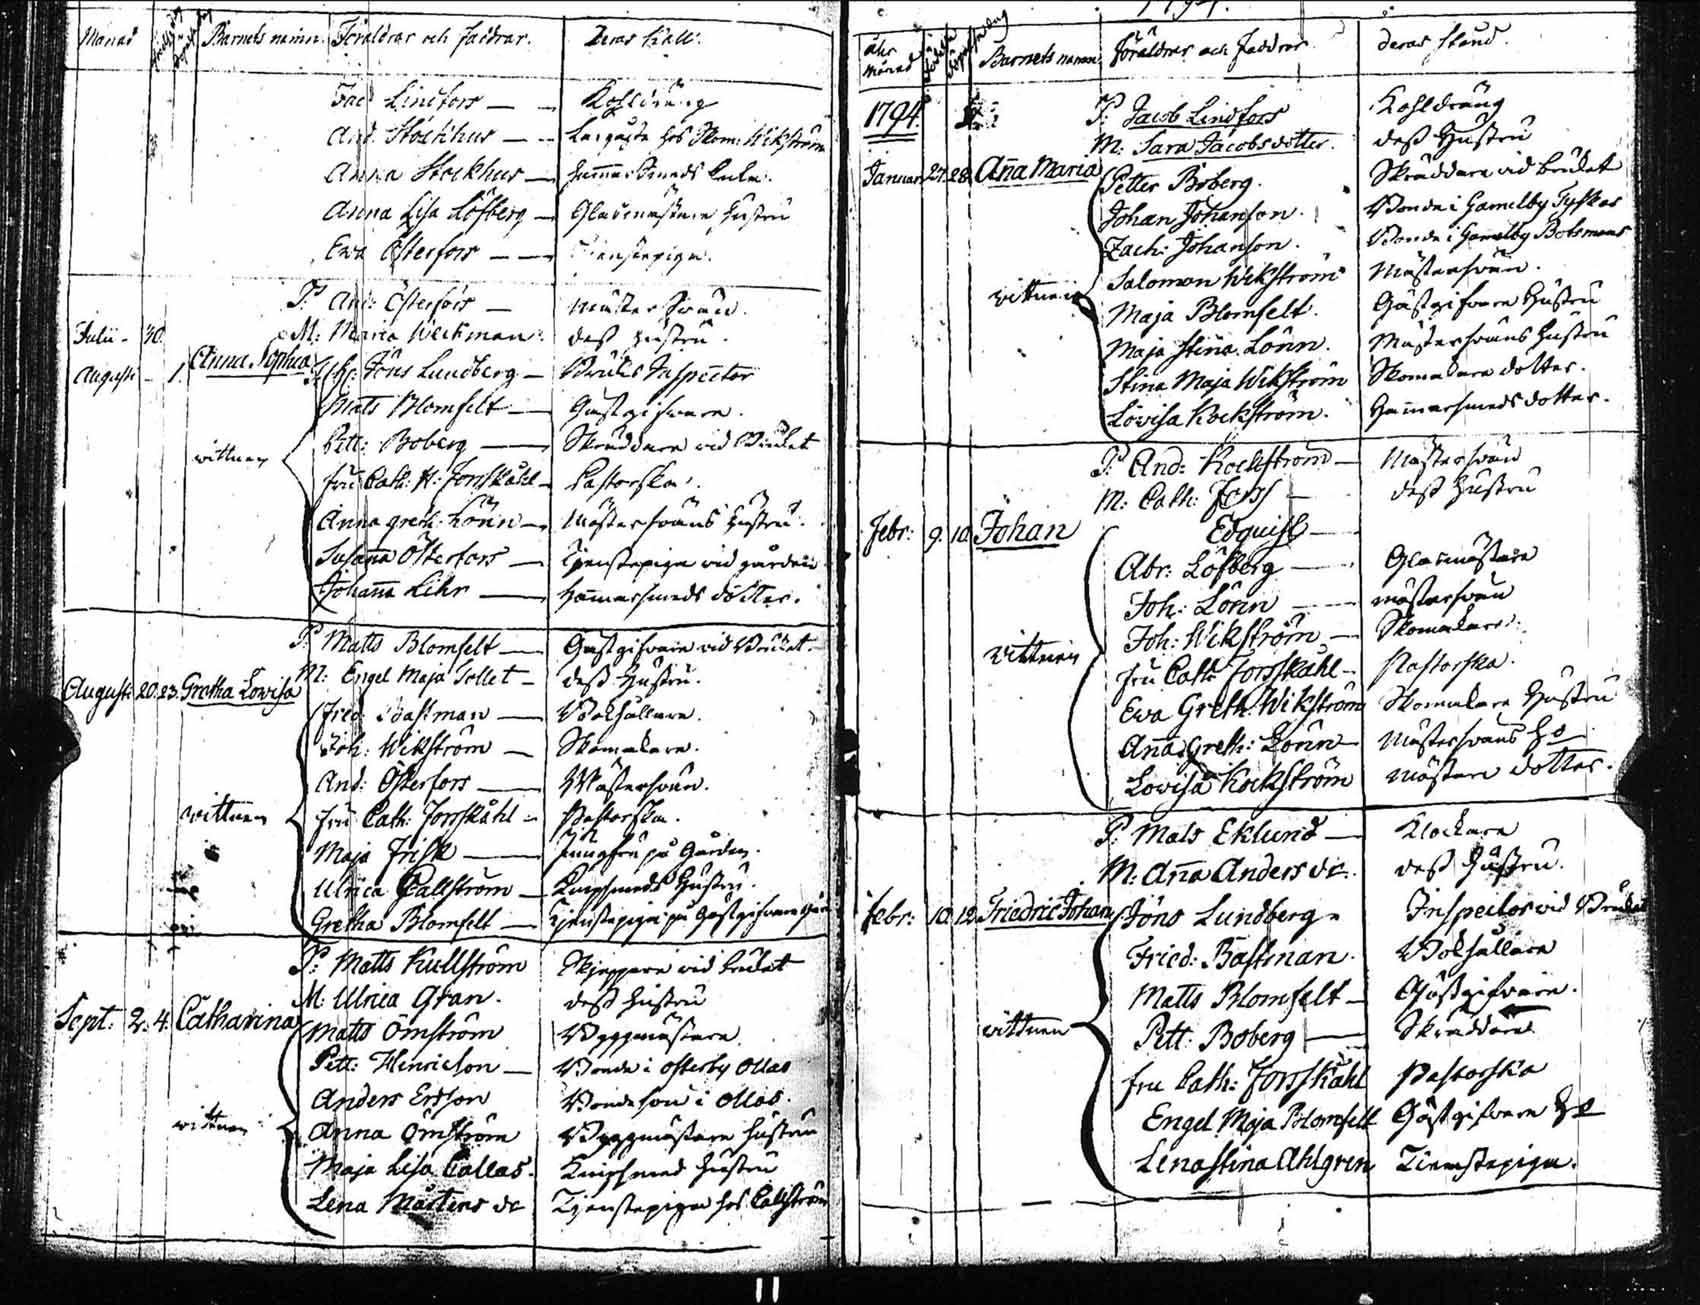 Månad Barnets namn. Föräldrar och faddrar. Deras kall.
Jac Lindfors — Kohldräng
And. Stockhus — hos Skom: Wikström
Anna Stockhus — Hammarsmeds
Anna Lisa Löfberg — Glasmästare hustru
Ewa Österfors — Tienstepiga.
P. And: Österfors — Mästersven.
Julii 30. M: Maria Weckman: deß hustru.
Augusti 1. Anna Sophia
Jöns Lundberg — Bruks Inspector
Mats Blomfelt — Gästgifvare.
wittnen Pett: Boberg — Skräddare vid Bruket
fru Cath. H: Forsskåhl — Pastorska.
Anna greth. Lönn — Mästersvens hustru.
Susanna Österfors — Tjenstepiga vid gården
Johanna Lihr — Hammarsmeds dotter.
P. Matts Blomfelt — Gästgifvare vid Bruket.
M: Engel Maja Sollet — deß hustru.
Augusti 20. 23. Gretha Lowisa
Fred. Bastman — Bokhållare.
Joh: Wikström — Skomakare.
And: Österfors — Mästersven.
wittnen fru Cath: Forsskåhl — Pastorska.
Maja Frisk — Jungfru på Gården.
Ulrica Callström — Knipsmeds hustru.
Gretha Blomfelt — Tjenstepiga på Gästgifvare
P: Matts Kullström Skeppare vid bruket
M: Ulrica Gran. deß hustru
Sept: 2. 4. Catharina Matts Ömström Byggmästare
Pett: Henricson — Bonde i Österby Ollas
Anders Ersson Bondeson i Ollas.
wittnen Anna Ömström Byggmästare hustru
Maja Lisa Callas. Knipsmed hustru
Lena Mårtens dr Tjenstepiga hos Callström
1794.
åhr månad Barnets namn Föräldrar och faddrar. deras stånd.
1794 P: Jacob Lindfors Kohldräng
M: Sara Jacobsdotter. deß Hustru
Januari 27. 28. Aña Maria Petter Boberg. Skräddare vid bruket
Johan Johanson. Bonde i Gamelby Tyskas
Zach: Johanson. Bonde i Gamelby Botsmans
wittnen Salomon Wikström Mästersven.
Maja Blomfelt. Gästgifvare Hustru
Maja Stina Lönn. Mästersvens Hustru
Stina Maja Wikström Skomakare dotter.
Lovisa Kockström. Hammarsmeds dotter.
P. And: Kockström — Mästersven
M: Cath: Forss — deß Hustru
Febr: 9. 10. Johan Edquist —
Abr: Löfberg — Glasmästare
Joh: Lönn — mästersven
wittnen Joh: Wikström — Skomakare.
fru Cath: Forsskåhl — Pastorska.
Ewa Greth. Wikström Skomakare Hustru
Aña Greth: Lönn — Mästersvens H:o
Lovisa Kockström mästare dotter.
P: Mats Eklund — Klockare
M: Aña Anders dr. deß Hustru.
Febr: 10. 12. Friedric Johan Jöns Lundberg Inspector vid Bruket
Fried: Bastman. Bokhållare
Matts Blomfelt — Gästgifvare.
wittnen Pett: Boberg — Skräddare
fru Cath: Forsskåhl Pastorska
Engel Maja Blomfelt Gästgifvare H:o
Lena Stina Ahlgren Tienstepiga.
11